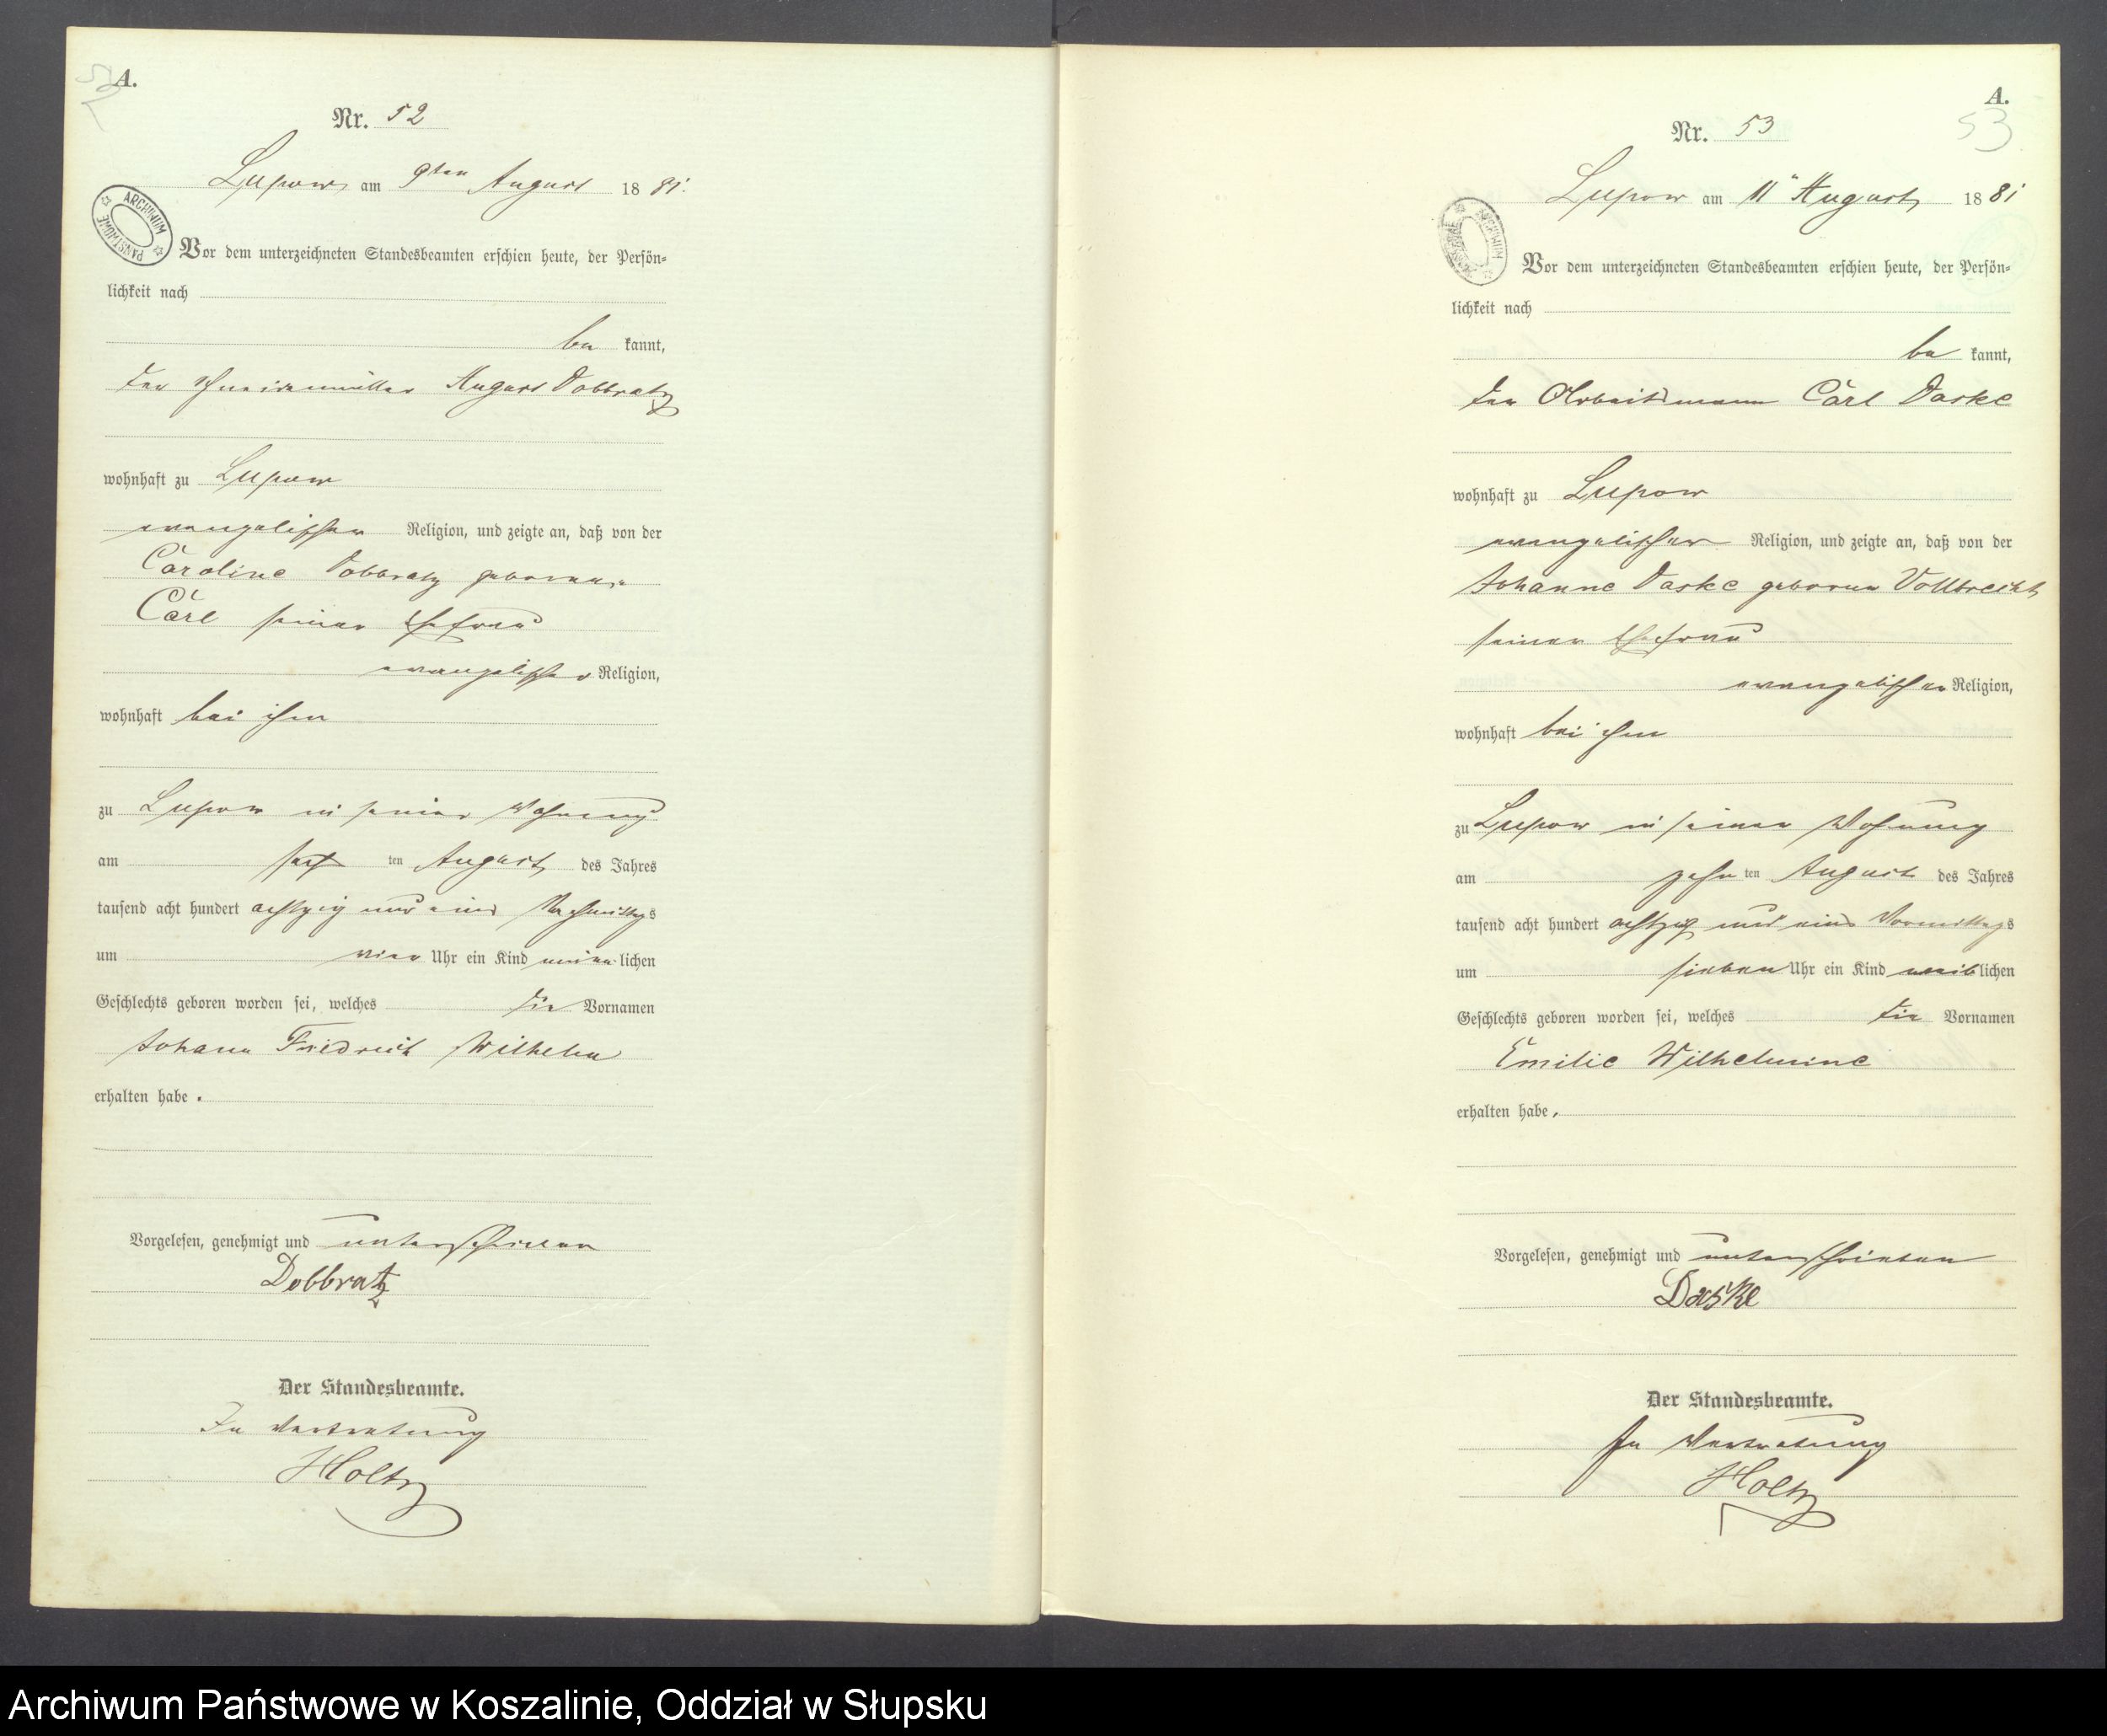 A.
52
Nr. 52
Lupow am 9ten August 1881.
ARCHIWUM PAŃSTWOWE
Vor dem unterzeichneten Standesbeamten erschien heute, der Persön-
lichkeit nach
be kannt,
der Schneidemüller August Dobbratz
wohnhaft zu Lupow
evangelischer Religion, und zeigte an, daß von der
Caroline Dobbratz geborene
Carl seiner Ehefrau
evangelischer Religion,
wohnhaft bei ihm
zu Lupow in seiner Wohnung
am ten August des Jahres
tausend acht hundert achtzig und eins Nachmittags
um vier Uhr ein Kind männlichen
Geschlechts geboren worden sei, welches die Vornamen
Johann Friedrich Wilhelm
erhalten habe.
Vorgelesen, genehmigt und unterschrieben
Dobbratz
Der Standesbeamte.
In Vertretung
Holtz
A.
53
Nr. 53
Lupow am 11" August 1881
ARCHIWUM PAŃSTWOWE
Vor dem unterzeichneten Standesbeamten erschien heute, der Persön-
lichkeit nach
be kannt,
der Arbeitsmann Carl Daske
wohnhaft zu Lupow
evangelischer Religion, und zeigte an, daß von der
Johanne Daske geborene Vollbrecht
seiner Ehefrau
evangelischer Religion,
wohnhaft bei ihm
zu Lupow in seiner Wohnung
am zehn ten August des Jahres
tausend acht hundert achtzig und eins Vormittags
um sieben Uhr ein Kind weiblichen
Geschlechts geboren worden sei, welches die Vornamen
Emilie Wilhelmine
erhalten habe.
Vorgelesen, genehmigt und unterschrieben
Daske
Der Standesbeamte.
In Vertretung
Holtz
Archiwum Państwowe w Koszalinie, Oddział w Słupsku